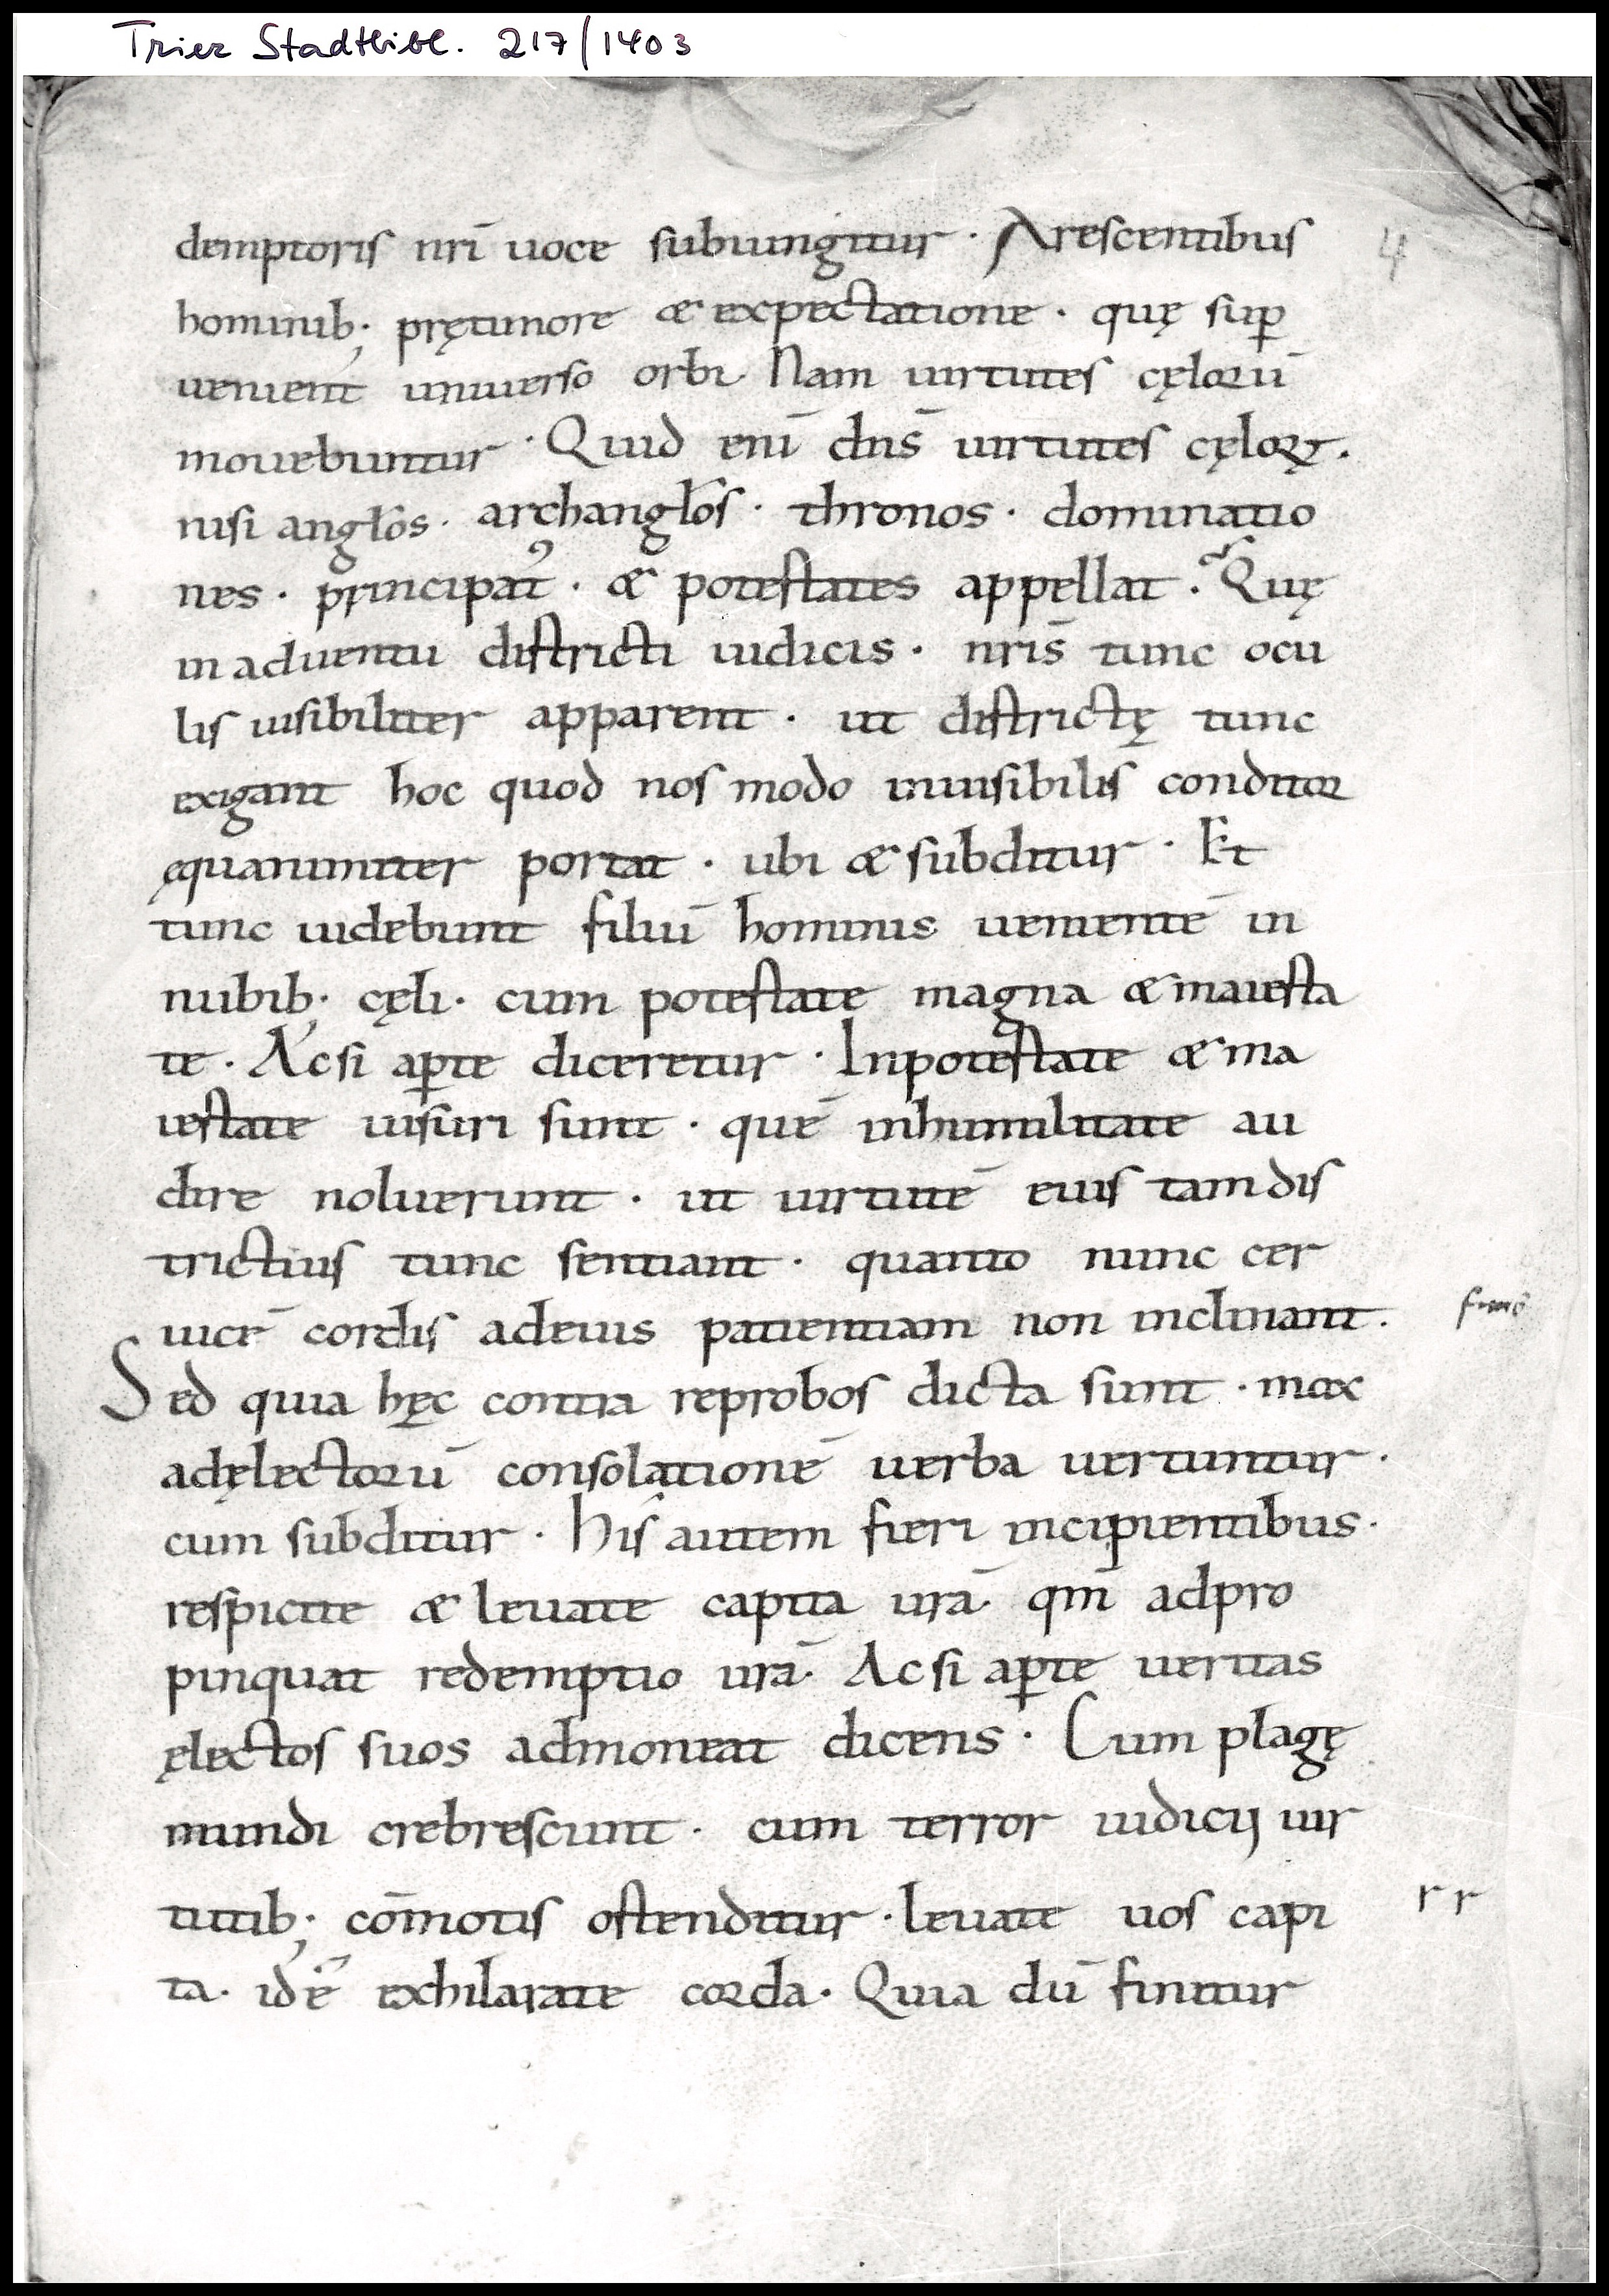 Trier Stadtbibl. 217/1403
demptoris nr̄i uoce subiungitur · Arescentibus 4
hominib; prętimore & expectatione · quę suꝑ
uenient uniuerso orbi Nam uirtutes cęlorū
mouebuntur · Quid enī dn̄s uirtutes cęloꝝ.
nisi angl̄os · archangl̄os · thronos · dominatio
nes · principatꝰ · & potestates appellat · Quę
in aduentu districti iudicis · nr̄is tunc ocu
lis uisibiliter apparent · ut districtę tunc
exigant hoc quod nos modo inuisibilis conditor
ęquanimiter portat · ubi & subditur · Et
tunc uidebunt filiū hominis uenientē in
nubib; cęli · cum potestate magna & maiesta
te · Ac si aꝑte diceretur · Inpotestate & ma
iestate uisuri sunt · quē inhumilitate au
dire noluerunt · ut uirtutē eius tam dis
trictius tunc sentiant · quanto nunc cer
uicē cordis adeius patientiam non inclinant.
Sed quia hęc contra reprobos dicta sunt · mox
adęlectorū consolationē uerba uertuntur ·
cum subditur · His autem fieri incipientibus ·
respicite & leuate capita ur̄a · qm̄ adpro
pinquat redemptio ur̄a · Ac si aꝑte ueritas
ęlectos suos admoneat dicens · Cum plagę
mundi crebrescunt · cum terror iudicij uir
tutib; cōmotis ostenditur · leuate uos capi r r
ta · id ē exhilarate corda · Quia dū finitur